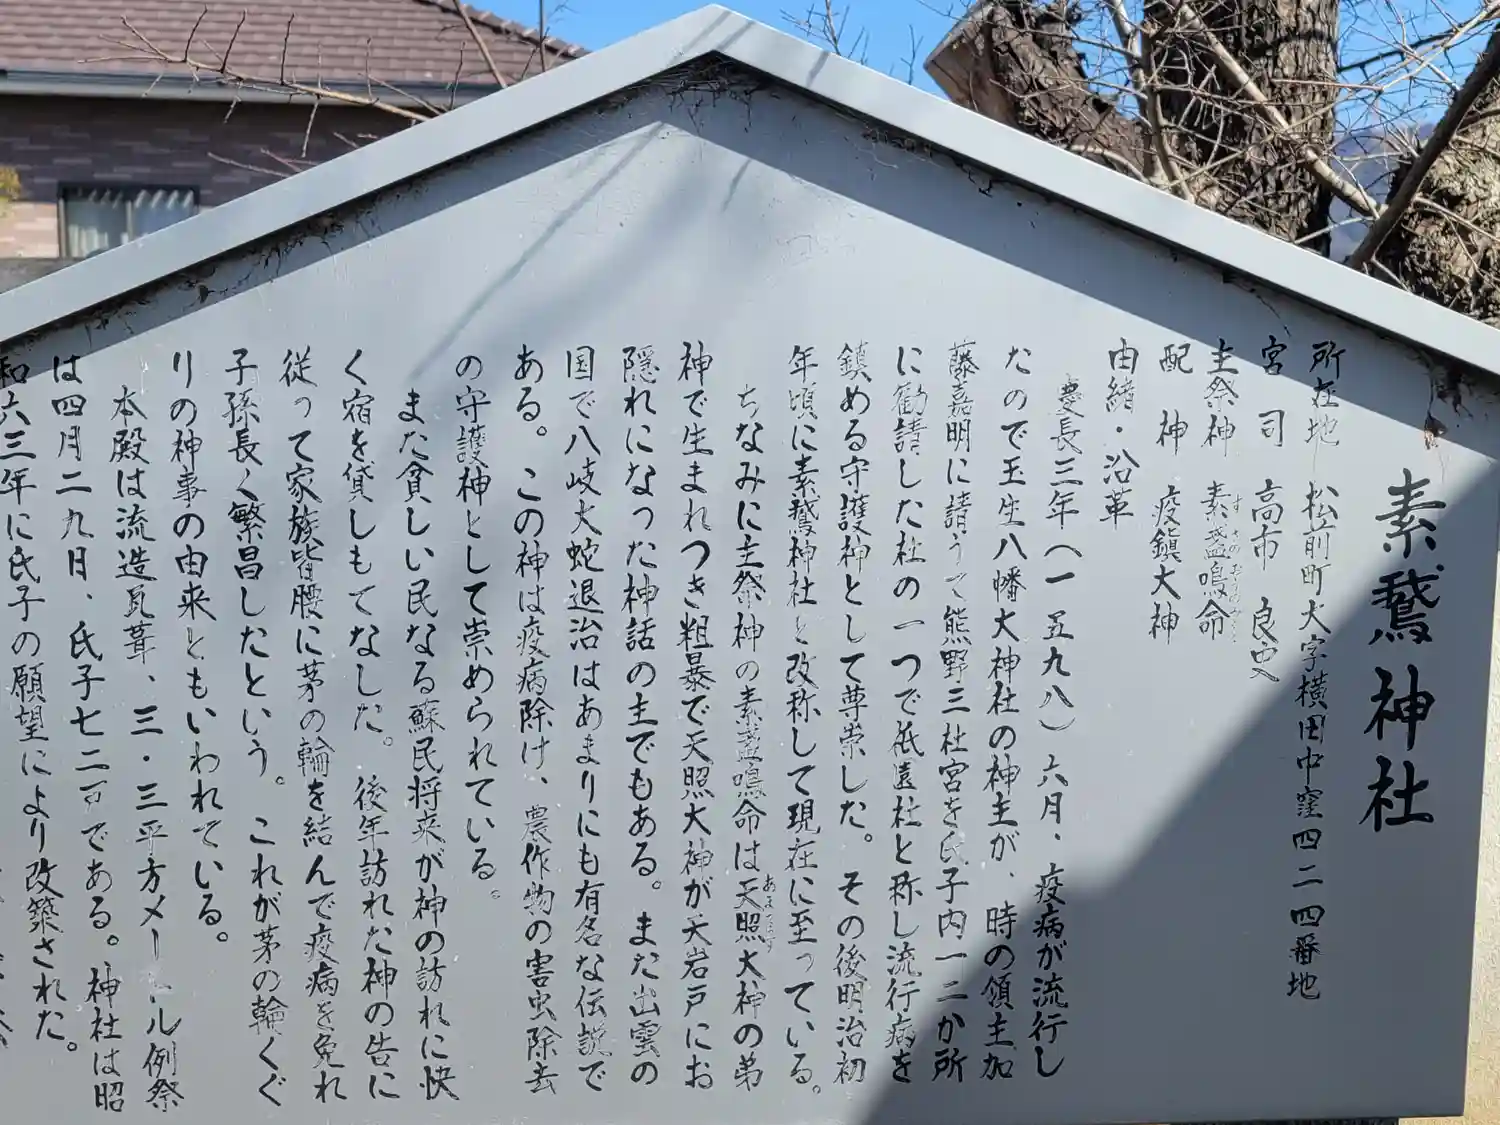 素鵞神社
所在地 松前町大字横田中窪四二四番地
宮司 高市 良史
主祭神 素盞鳴命
配神 疫鎮大神
由緒・沿革
慶長三年(一五九八)六月、疫病が流行し
たので玉生八幡大神社の神主が、時の領主加
藤嘉明に請うて熊野三社宮を氏子内一二か所
に勧請した社の一つで祇園社と称し流行病を
鎮める守護神として尊崇した。その後明治初
年頃に素鵞神社と改称して現在に至っている。
ちなみに主祭神の素盞鳴命は天照大神の弟
神で生まれつき粗暴で天照大神が天岩戸にお
隠れになった神話の主でもある。また出雲の
国で八岐大蛇退治はあまりにも有名な伝説で
ある。この神は疫病除け、農作物の害虫除去
の守護神として崇められている。
また貧しい民なる蘇民将来が神の訪れに快
く宿を貸しもてなした。後年訪れた神の告に
従って家族皆腰に茅の輪を結んで疫病を免れ
子孫長く繁昌したという。これが茅の輪くぐ
りの神事の由来ともいわれている。
本殿は流造瓦葺、三・三平方メートル例祭
は四月二九日、氏子七二戸である。神社は昭
和六三年に氏子の願望により改築された。